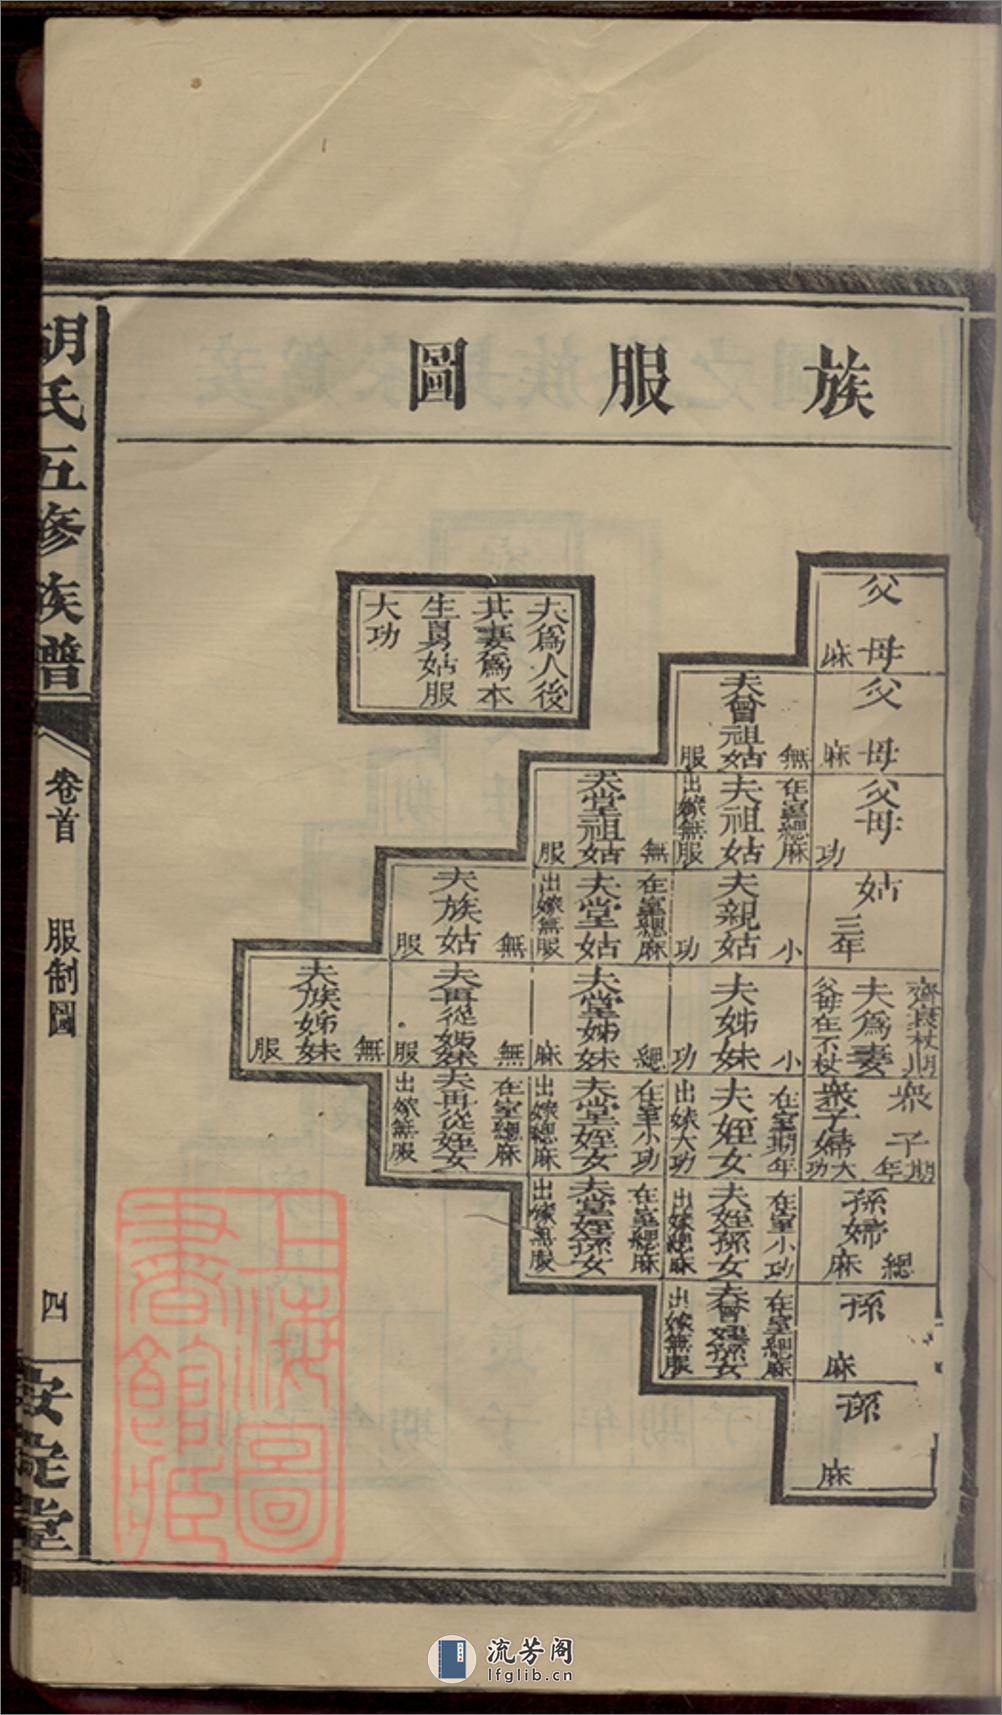 族服圖
父母
麻
父母
麻
父母
功
姑
三年
齊衰杖期
夫爲妻
父母在不杖
衆子
期年
衆子婦大功
孫婦
緦麻
孫
麻
孫
麻
夫曾祖姑
無服
夫祖姑
在室緦麻
出嫁無服
夫親姑
小功
夫姊妹
小功
夫姪女
在室期年
出嫁大功
夫姪孫女
在室小功
出嫁緦麻
夫曾姪孫女
在室緦麻
出嫁無服
夫堂祖姑
無服
夫堂姑
在室緦麻
出嫁無服
夫堂姊妹
緦麻
夫堂姪女
在室小功
出嫁緦麻
夫堂姪孫女
在室緦麻
出嫁無服
夫族姑
無服
夫再從姊妹
無服
夫再從姪女
在室緦麻
出嫁無服
夫族姊妹
無服
夫爲人後
其妻爲本
生舅姑服
大功
胡氏五修族譜
卷首
服制圖
四
安定堂
上海圖書館藏
流芳阁
lfglib.cn